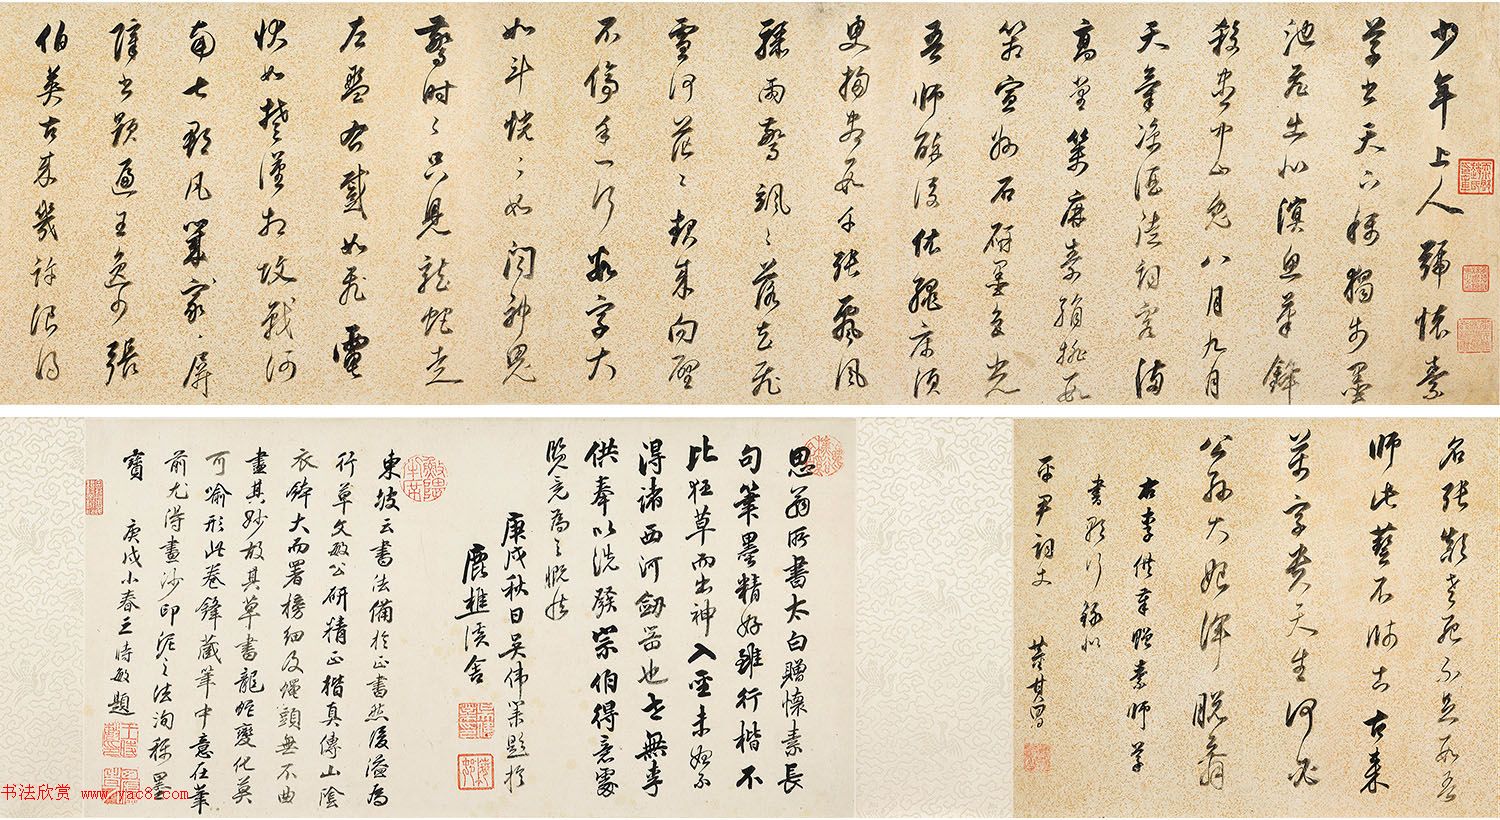 少年上人號懷素
草書天下稱獨步墨
池飛出北溟魚筆鋒
殺盡中山兔八月九月
天氣涼酒徒詞客滿
高堂箋麻素絹排數
箱宣州石硯墨色光
吾師醉後倚繩床須
臾掃盡數千張飄風
驟雨驚颯〻落花飛
雪何茫〻起來向壁
不停手一行數字大
如斗恍〻如聞神鬼
驚時〻只見龍蛇走
左盤右蹙如飛電
狀如楚漢相攻戰湖
南七郡凡幾家〻屏
障書題遍王逸少張
伯英古來幾許浪得
名張顛老死不足數吾
師此藝不師古古來
萬字貴天生何必
公孫大娘渾脫舞
右李供奉贈素師草
書歌行 録似
平尹詞丈 董其昌
思翁所書太白贈懷素長
句筆墨精好雖行楷不
比狂草而出神入聖未始不
得諸西河劍器也無事
供奉以洗發宗伯得意處
覽竟為之慨然
庚戌秋日吳偉業題於
鹿樵溪舍
東坡云書法備於正書然後溢為
行草文敏公研精正楷真傳山陰
衣鉢大而署榜細及蠅頭無不曲
盡其妙故其草書龍蛇變化莫
可喻形此卷鋒藏筆中意在筆
前尤得畫沙印泥之法洵稱墨
寶 庚戌小春王時敏題
书法欣赏 www.yac8.com